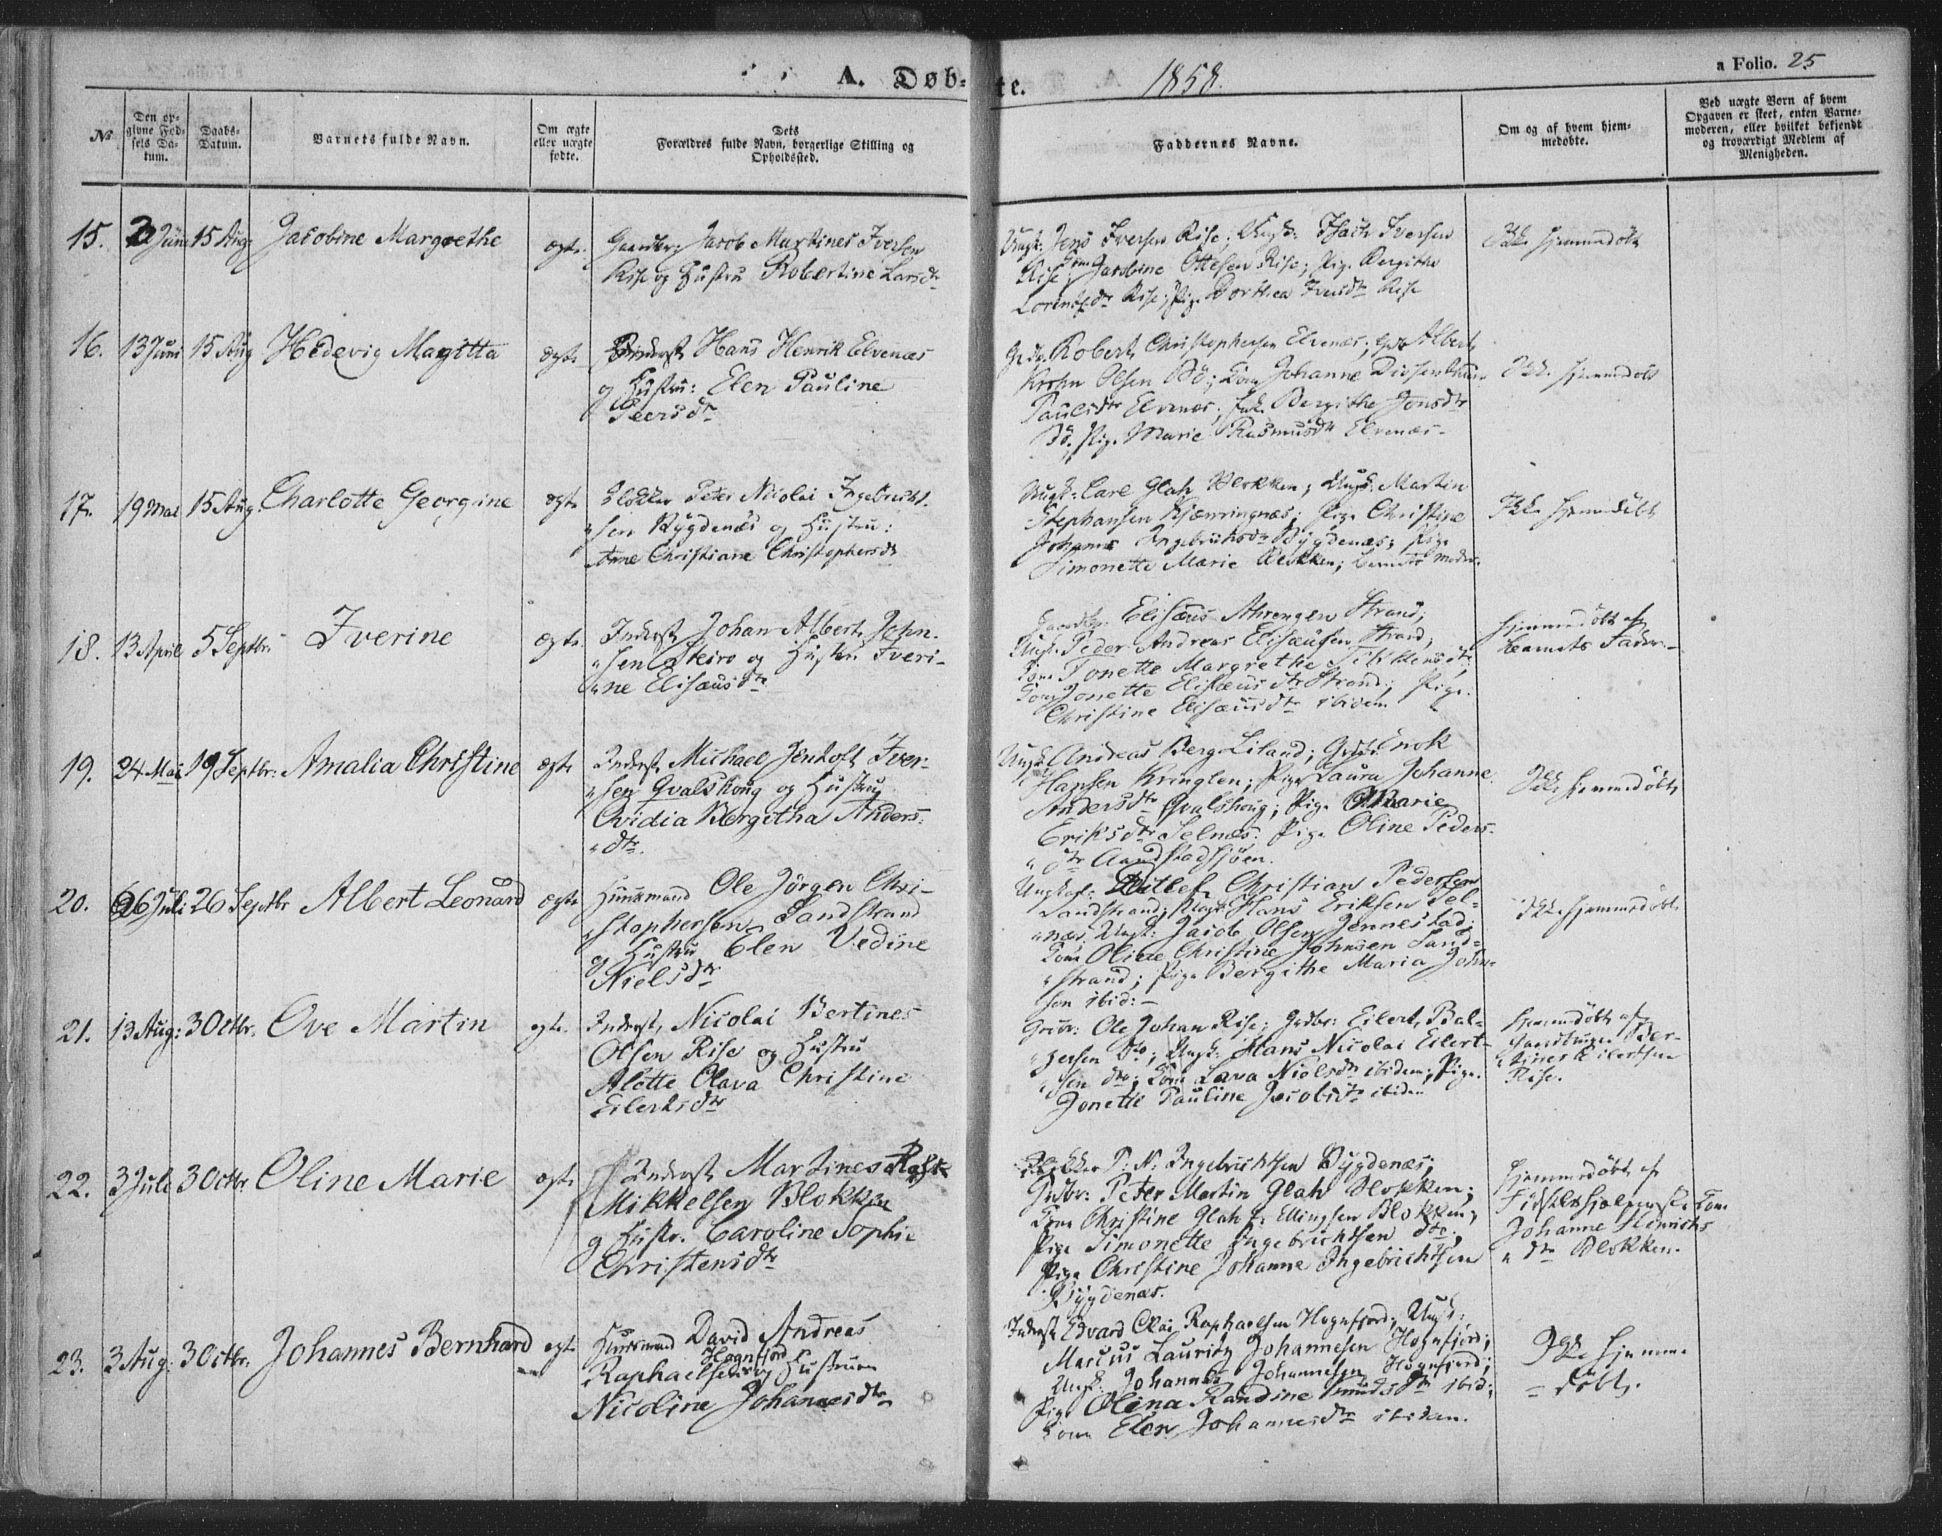 A. Døbte. 1858.
a Folio. 25
No
Den op-
givne Fød-
sels Da-
tum.
Daabs-
Datum.
Barnets fulde Navn.
Om ægte
eller uægte
fødte.
Dets
Forældres fulde Navn, borgerlige Stilling og
Opholdssted.
Faddernes Navne.
Om og af hvem hjem-
medøbte.
Ved uægte Born af hvem
Opgaven er skeet, enten Barne-
moderen, eller hvilket bekjendt
og troværdigt Medlem af
Menigheden.
15. Juni 15 Aug Jacobine Margrethe ægte Jacob Martines Iversen
Rise og Hustru Robertine Larsdtr
Ungk: Jens Iversen Rise; Ungk: Iversen
Rise; Kone Jacobine Ottesen Rise; Pige Bergithe
Lorentsdtr Rise; Pige Dorthea Iversdtr Rise
Ikke hjemmedøbt
16. 13 Juni 15 Aug Hedevig Magitta ægte Hans Henrik Elvenæs
og Hustru: Elen Pauline
Peersdtr
Robert Christophersen Elvenæs; Albert
Krohn Olsen Bø; Kone Johanne
Paulsdtr Elvenæs; Bergithe Jonsdtr
Bø; Pige Marie Rasmusdtr Elvenæs-
Ikke hjemmedøbt
17. 19 Mai 15 Aug. Charlotte Georgine ægte Klokker Peter Nicolai Ingebricht-
"sen Bygdenæs og Hustru:
Anne Christiane Christophersdtr
Ungk: Carl Glah Blokken; Ungk: Martin
Stephansen Kjærringnæs; Pige Christine
Johanne Ingebrichtsdtr Bygdenæs; Pige
Simonette Marie Blokken; Barnets Moder.
Ikke hjemmedøbt
18. 13 April 5 Septbr: Iverine ægte Inderst Johan Albert John-
"sen Steiro og Hustru Iveri-
"ne Elisæusdtr
Elisæus Ahrengen Strand;
Ungk: Peder Andreas Elisæusen Strand;
Kone Tonette Margrethe
Kone Jonette Elisæusdtr Strand; Pige
Christine Elisæusdtr ibidem
Hjemmedøbt af
Barnets Fader.-
19. 24 Mai 19 Septbr: Amalia Christine ægte Inderst Michael Jentoft Iver-
"sen Qvalshoug og Hustru
Ovidia Bergitha Anders-
"dtr.
Ungk: Andreas Berg Liland; Enok
Hansen Kringlen; Pige Laura Johanne
Andersdtr Qvalshoug; Pige Marie
Eriksdtr Selnæs: Pige Oline Peders-
"dtr Aandstadsjøen.
Ikke hjemmedøbt
20. 26 Juli 26 Septbr Albert Leonard ægte Huusmand Ole Jørgen Chri-
"stophersen Sandstrand
og Hustru Elen Vedine
Nielsdtr
Ungk: Ditlef Christian Pedersen
Sandstrand; Ungk: Hans Eriksen Sel-
"næs; Ungk: Jacob Olsen Jennestad;
Kone Oline Christine Johnsen Sand-
"strand; Pige Bergithe Maria John-
"sen ibid:-
Ikke hjemmedøbt
21. 13 Aug: 3 Octbr. Ove Martin ægte Inderst Nicolai Bertines
Olsen Rise og Hustru
Alette Olava Christine
Eilertsdtr
Ole Johan Rise; Gdbr: Eilert Bal-
"zersen dto; Ungk: Hans Nicolai Eilert-
"sen dto; Kone Lava Nielsdtr ibidem; Pige
Jonette Pauline Jacobsdtr ibidem
Hjemmedøbt af
Ber-
"tines Eilertsen
Rise.
22. 3 Juli 3 Octbr Oline Marie ægte Inderst Martines
Mikkelsen Blokken
og Hustr. Caroline Sophie
Christensdtr
Klokker P: N: Ingebrichtsen Bygdenæs;
Gdbr: Peter Martin Glah Blokken;
Kone Christine Glah f. Ellingsen Blokken;
Pige Simonette Ingebrichtsen dto;
Pige Christine Johanne Ingebrichtsen
Bygdenæs.
Hjemmedøbt af
Fødselshjælperske Kone
Johanne Henrichs
"dtr Blokken.
23. 3 Aug: 3 Octbr. Johannes Bernhard ægte Huusmand David Andreas
Raphaelsen Hognfjord og Hustru
Nicoline Johannesdtr
Inderst Edvard Olai Raphaelsen Hognfjord; Ungk:
Marcus Lauritz Johannesen Hognfjord;
Ungk: Johannes Johannesen Hognfjord;
Pige Olina Randine Knudsdtr ibid:
Kone Elen Johannesdtr ibidem.
Ikke hjemme-
= døbt.